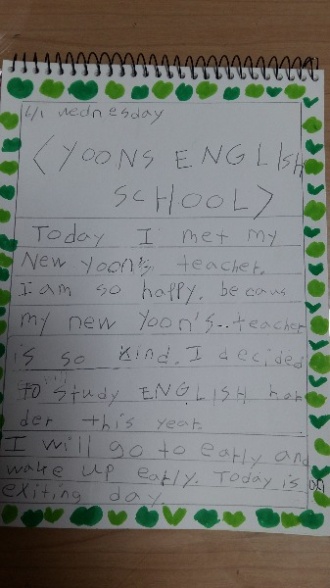 6/1 wednesday
<YOONS ENGLISH
SCHOOL>
Today I met my
New Yoon's teacher.
I am so happy. be caus
my new Yoon's..teacher
is so kind. I decided
to study ENGLISH har
der this year.
I will go to early and
wake up early. Today is
exiting day.